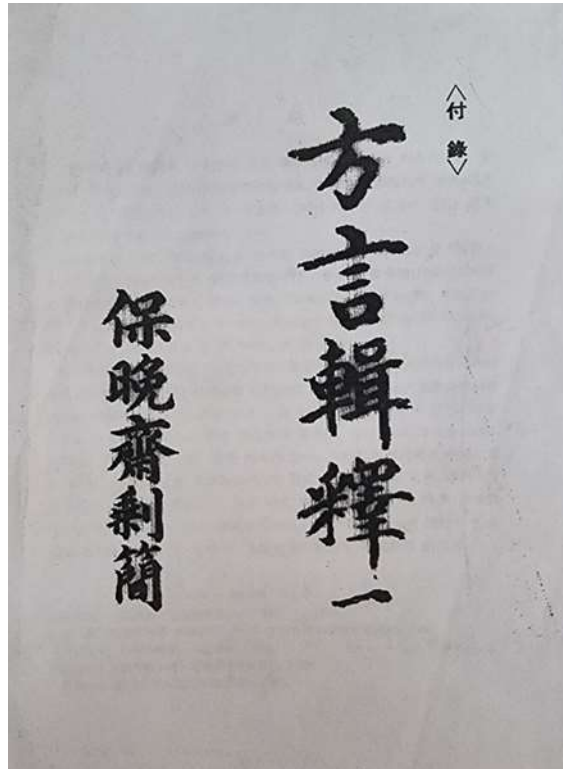 〈付 錄〉
方言輯釋 一
保晩齋剩簡